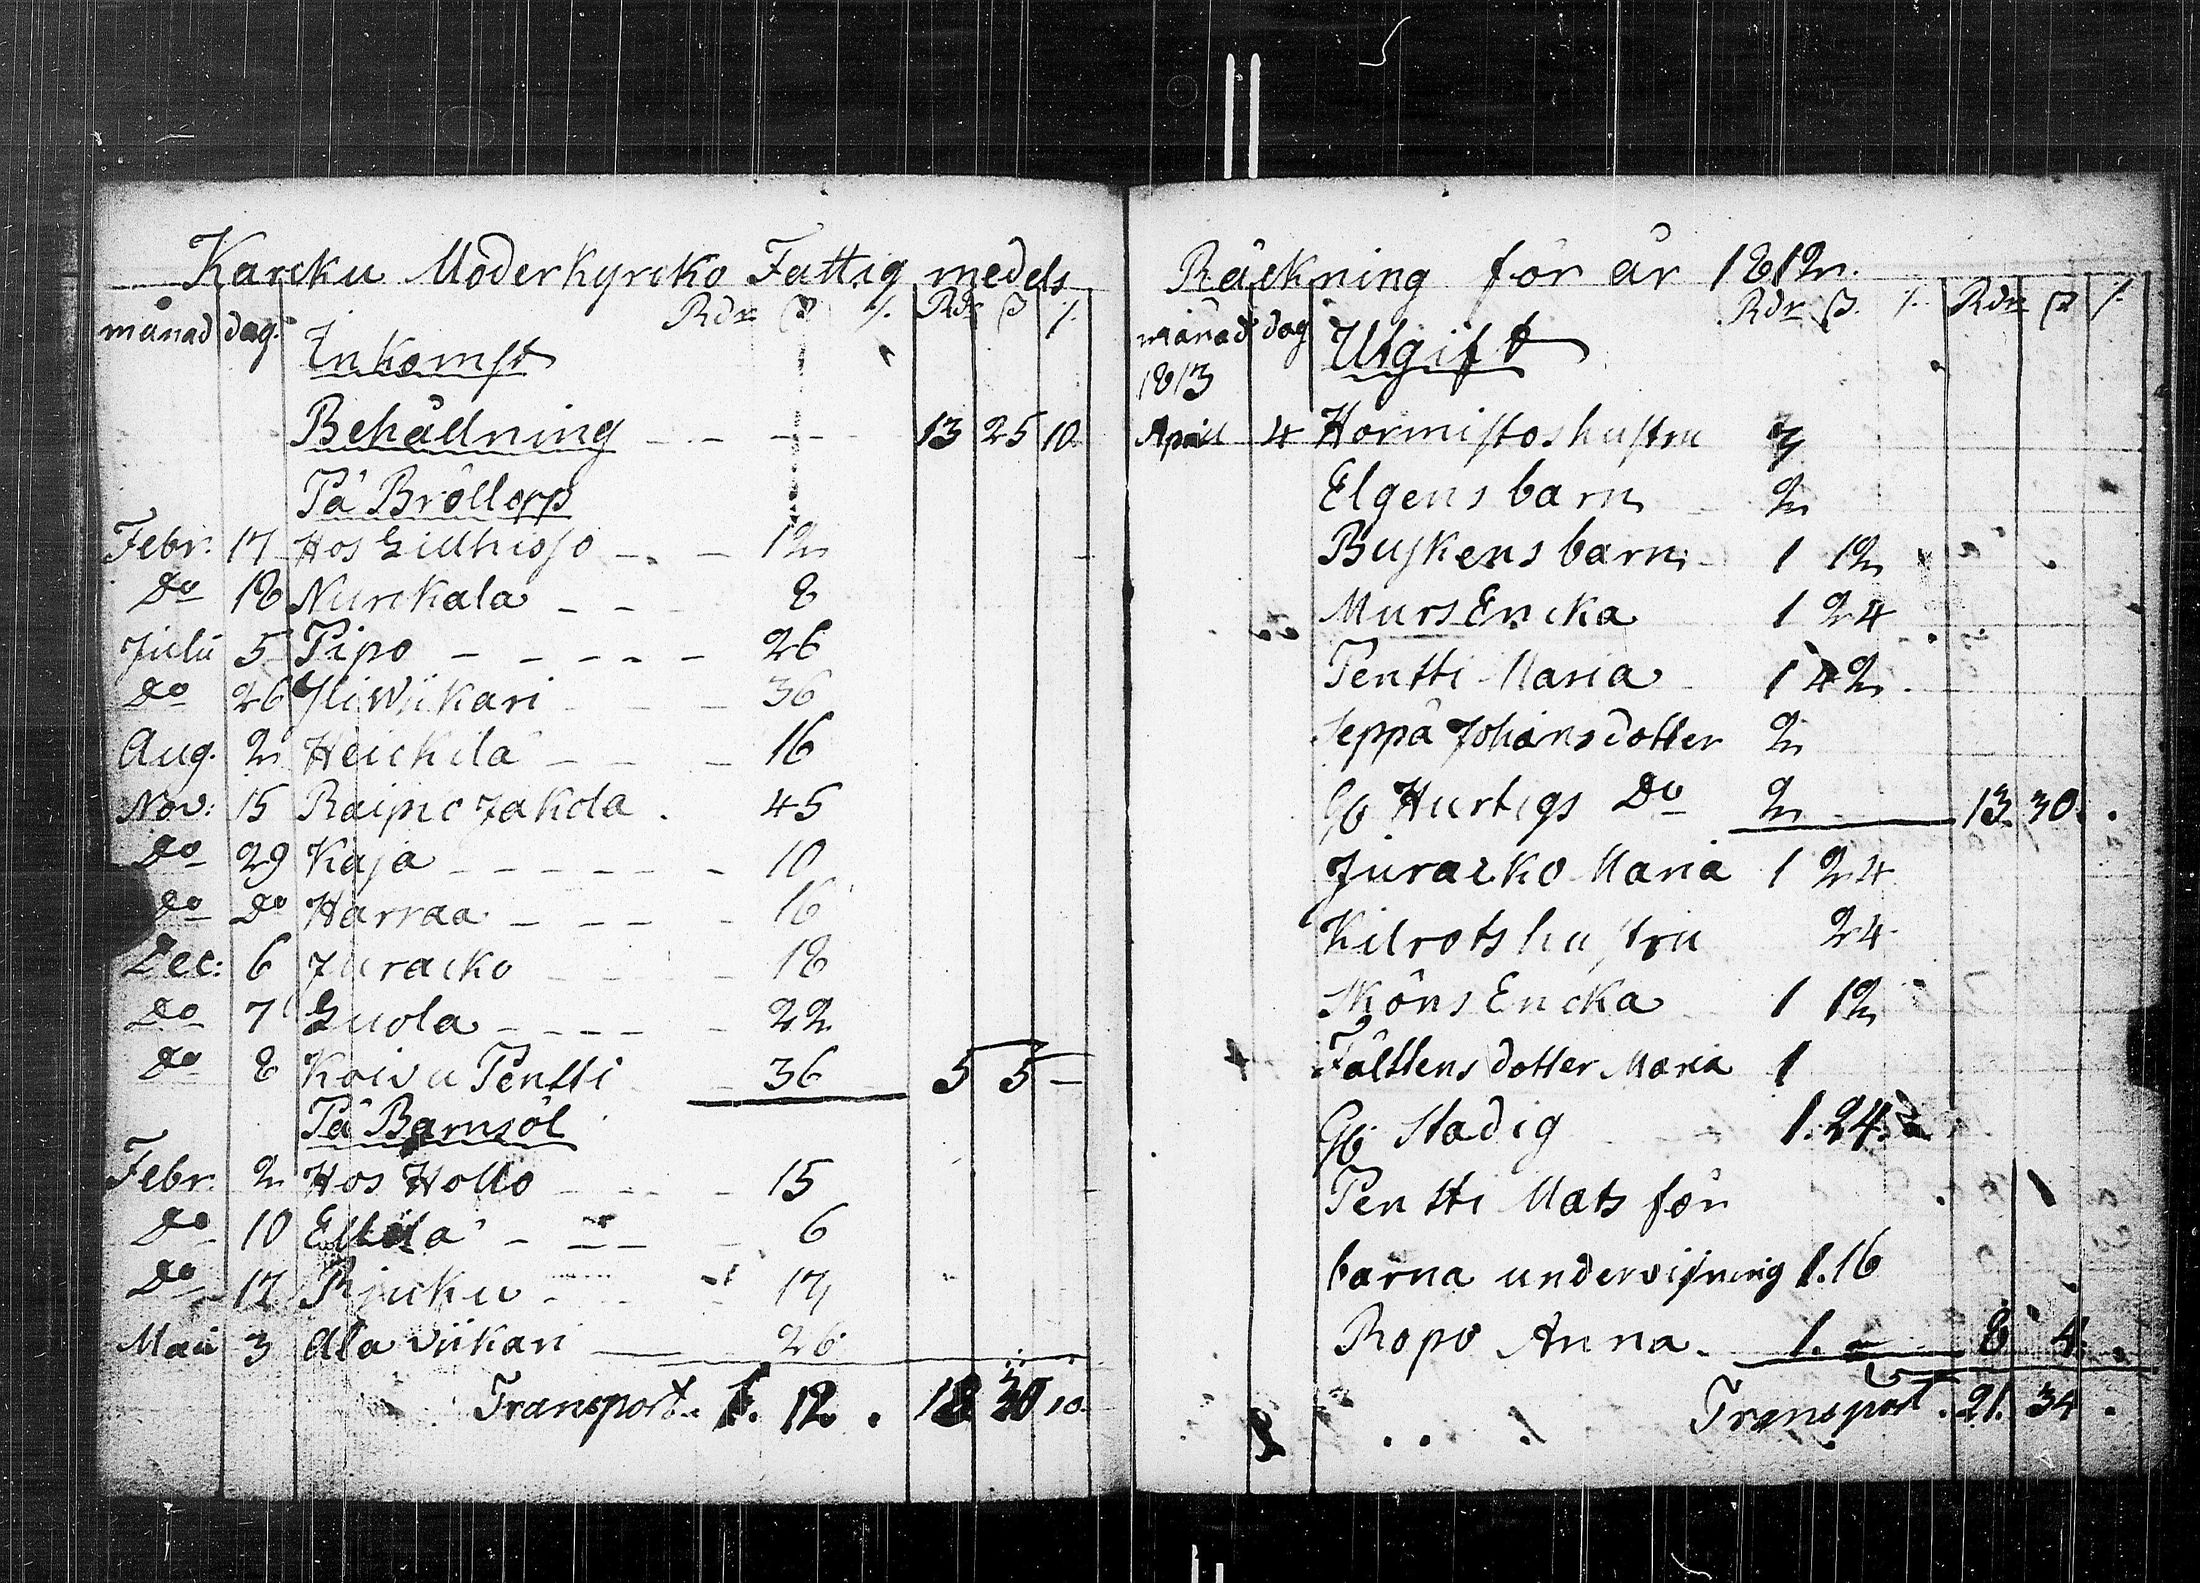 Karcku Moderkyrcko Fattig medels
månad dag. Rdr ß /. Rdr ß /.
Inkomst
Behållning - - - - 13 25 10
På Bröllopp
Febr: 17 Hos - - 12
Do 18 Nurckala - - 8
Julii 5 Pipo - - - - - 26
Do 26 Yli Wiikari - - 36
Aug. 2 Heickilä - - - 16
Nov: 15 Raipio Jakola . 45
Do 29 Kaja - - - - - - 10
Do Do Harraa - - - - 16
Dec: 6 Juracko - - - 18
Do 7 Luola - - - - - 22
Do 8 Koivu Pentti - 36 5 5 -
På Barnsöl
Febr. 2 Hos Hollo - - - 15
Do 10 - - - 6
Do 17 - - 17
Maii 3 Ala Viikari - 26
Transport. 1. 12. 18 30 10
Räckning för år 1812.
månad dag Rdr ß. /. Rdr ß /.
1813 Utgift
April 4 Hormistos hustru 3
Elgens barn 2
Buskens barn 1 12
Murs Encka 1 24
Pentti Maria 1 42
Seppä Johans dotter 2
Gb Hurtigs Do 2 13 30.
Juracko Maria 1 24
Kilrots hustru 24
Sköns Encka 1 12
Fälttens dotter Maria 1
Gb Stadig 1. 24.
Pentti Mats för
barna undervisning 1. 16
Ropo Anna. 1. - 8 4.
Transport. 21. 34.